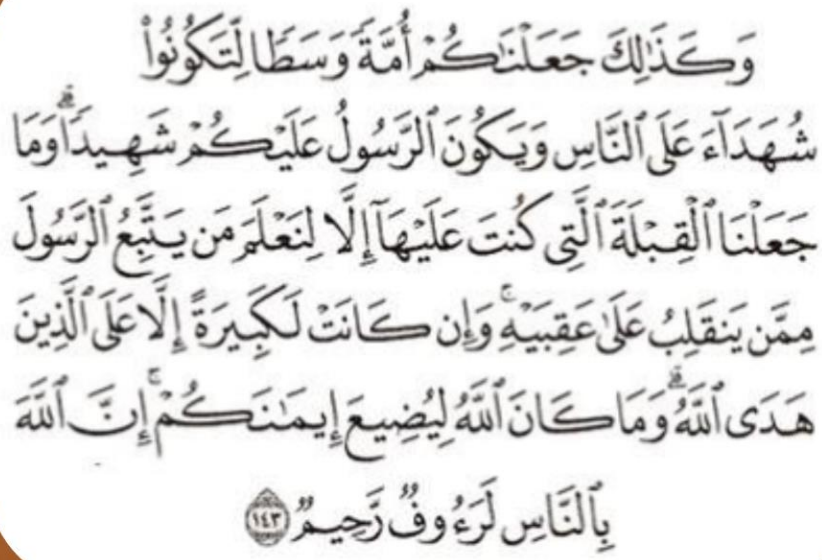 وَكَذَٰلِكَ جَعَلْنَٰكُمْ أُمَّةً وَسَطًا لِّتَكُونُوا۟
شُهَدَآءَ عَلَى ٱلنَّاسِ وَيَكُونَ ٱلرَّسُولُ عَلَيْكُمْ شَهِيدًا ۗ وَمَا
جَعَلْنَا ٱلْقِبْلَةَ ٱلَّتِى كُنتَ عَلَيْهَآ إِلَّا لِنَعْلَمَ مَن يَتَّبِعُ ٱلرَّسُولَ
مِمَّن يَنقَلِبُ عَلَىٰ عَقِبَيْهِ ۚ وَإِن كَانَتْ لَكَبِيرَةً إِلَّا عَلَى ٱلَّذِينَ
هَدَى ٱللَّهُ ۗ وَمَا كَانَ ٱللَّهُ لِيُضِيعَ إِيمَٰنَكُمْ ۚ إِنَّ ٱللَّهَ
بِٱلنَّاسِ لَرَءُوفٌ رَّحِيمٌ ١٤٣